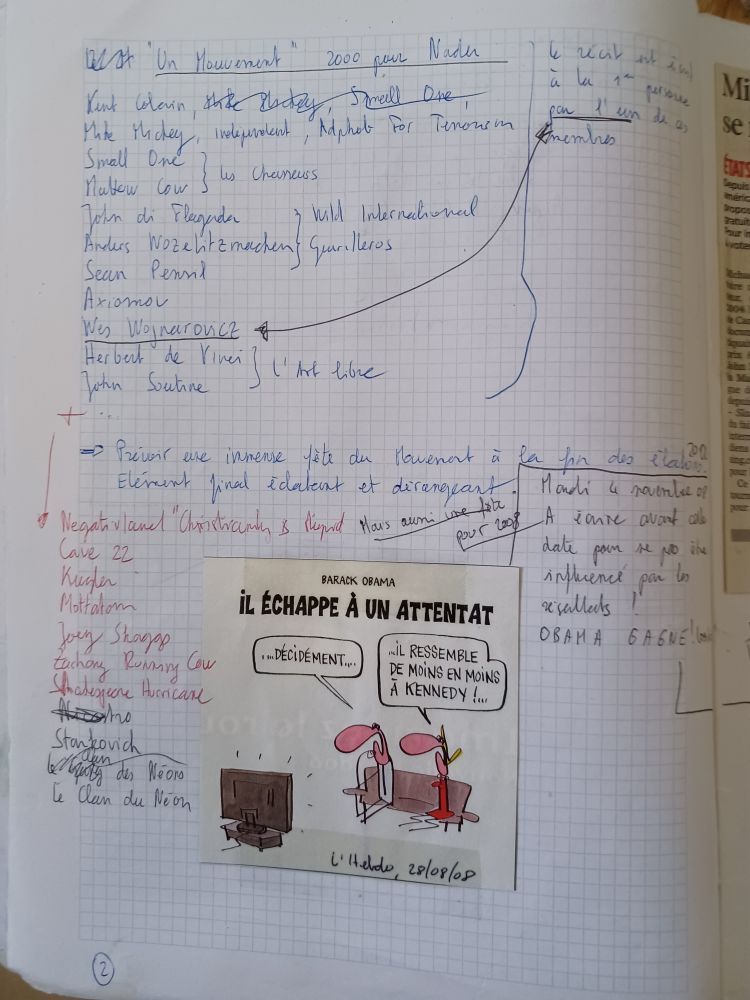 "Un Mouvement" 2000 pour Nader
Kent Colorin, Mike Mickey, Small One,
Mike Mickey, independent, Adphob For Terrorism
Small One
Mattow Cow } les Chanteurs
John di Flaganda } Wild International
Anders Wozelitzmachen Guerilleros
Sean Pennil
Axiomov
Wes Wojnarovicz
Herbert de Vinci
John Soutine } l'Art libre
+ ...
le récit est écrit
à la 1ère personne
par l'un de ces
membres
⇒ Prévoir une immense fête du Mouvement à la fin des élections. 2012
Elément final éclatant et dérangeant.
Mais aussi une fête
pour 2008
Mardi 4 novembre 08
A écrire avant cette
date pour ne pas être
influencé par les
résultats !
OBAMA GAGNE!
Negativland "Christianity is Stupid
Cave 22
Kugler
Mottatom
Joey Skaggs
Zachary Running Cow
Shakespeare Hurricane
Stankovich
des Néons
Le Clan du Néon
BARACK OBAMA
IL ÉCHAPPE À UN ATTENTAT
...DÉCIDÉMENT...
...IL RESSEMBLE
DE MOINS EN MOINS
À KENNEDY !...
L'Hebdo, 28/08/08
2
Mi
se
ÉTATS
Depuis